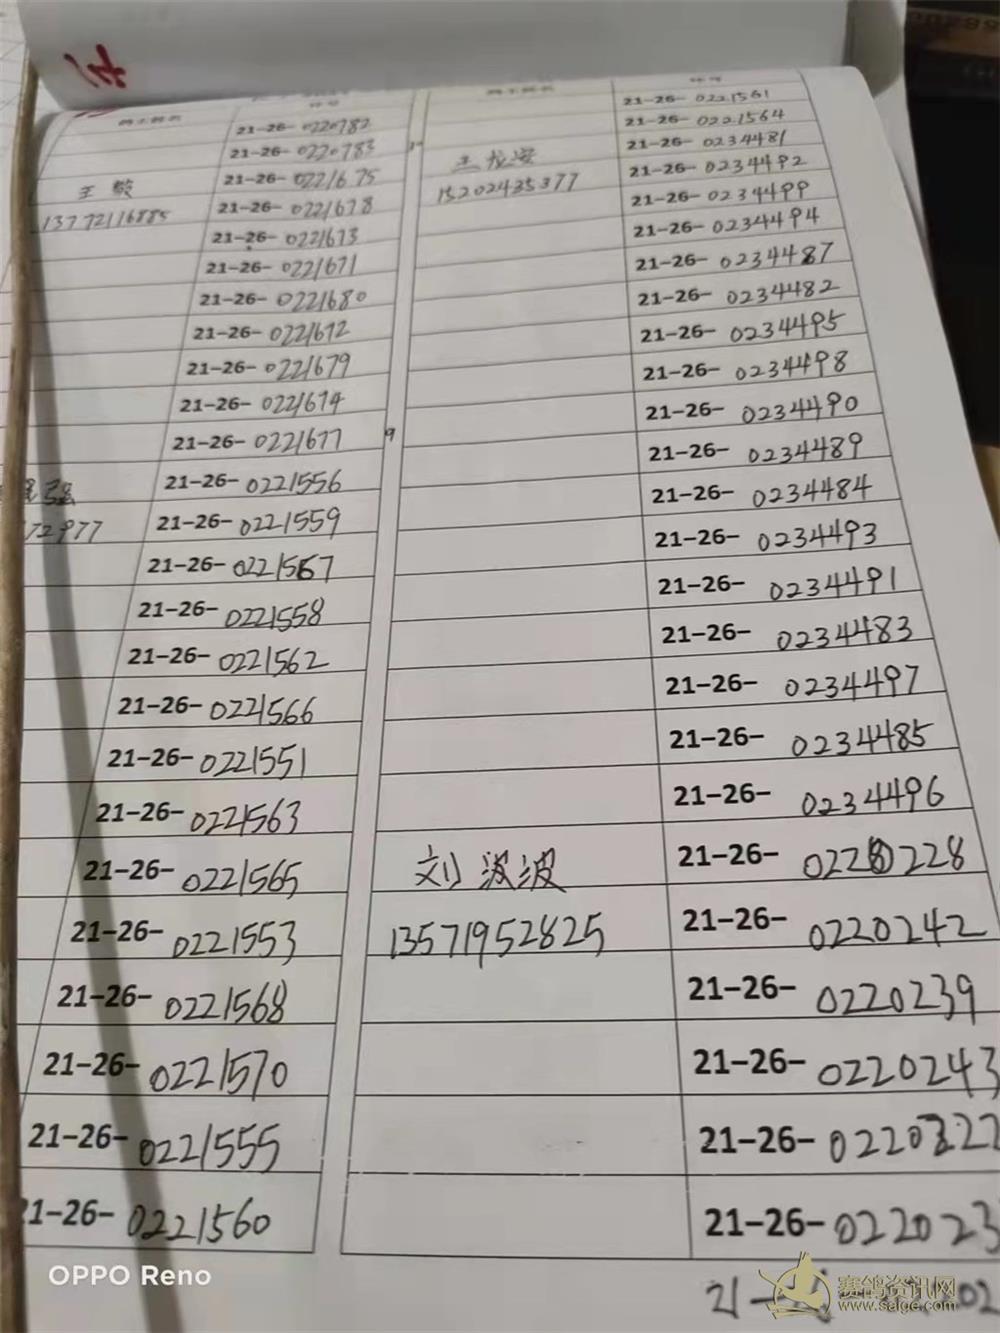 21-26-0220782
21-26-0220783
21-26-0221675
王毅
21-26-0221678
13772116885
21-26-0221673
21-26-0221671
21-26-0221680
21-26-0221672
21-26-0221679
21-26-0221674
21-26-0221677
21-26-0221556
强
21-26-0221559
72977
21-26-0221567
21-26-0221558
21-26-0221562
21-26-0221566
21-26-0221551
21-26-0221563
21-26-0221565
21-26-0221553
21-26-0221568
21-26-0221570
21-26-0221555
21-26-0221560
21-26-0221561
21-26-0221564
21-26-0234481
王龙安
21-26-0234492
15202435377
21-26-0234499
21-26-0234494
21-26-0234487
21-26-0234482
21-26-0234495
21-26-0234498
21-26-0234490
9
21-26-0234489
21-26-0234484
21-26-0234493
21-26-0234491
21-26-0234483
21-26-0234497
21-26-0234485
21-26-0234496
刘波波
21-26-0220228
13571952825
21-26-0220242
21-26-0220239
21-26-0220243
21-26-
21-26-022023
21-
OPPO Reno
赛鸽资讯网
www.saige.com